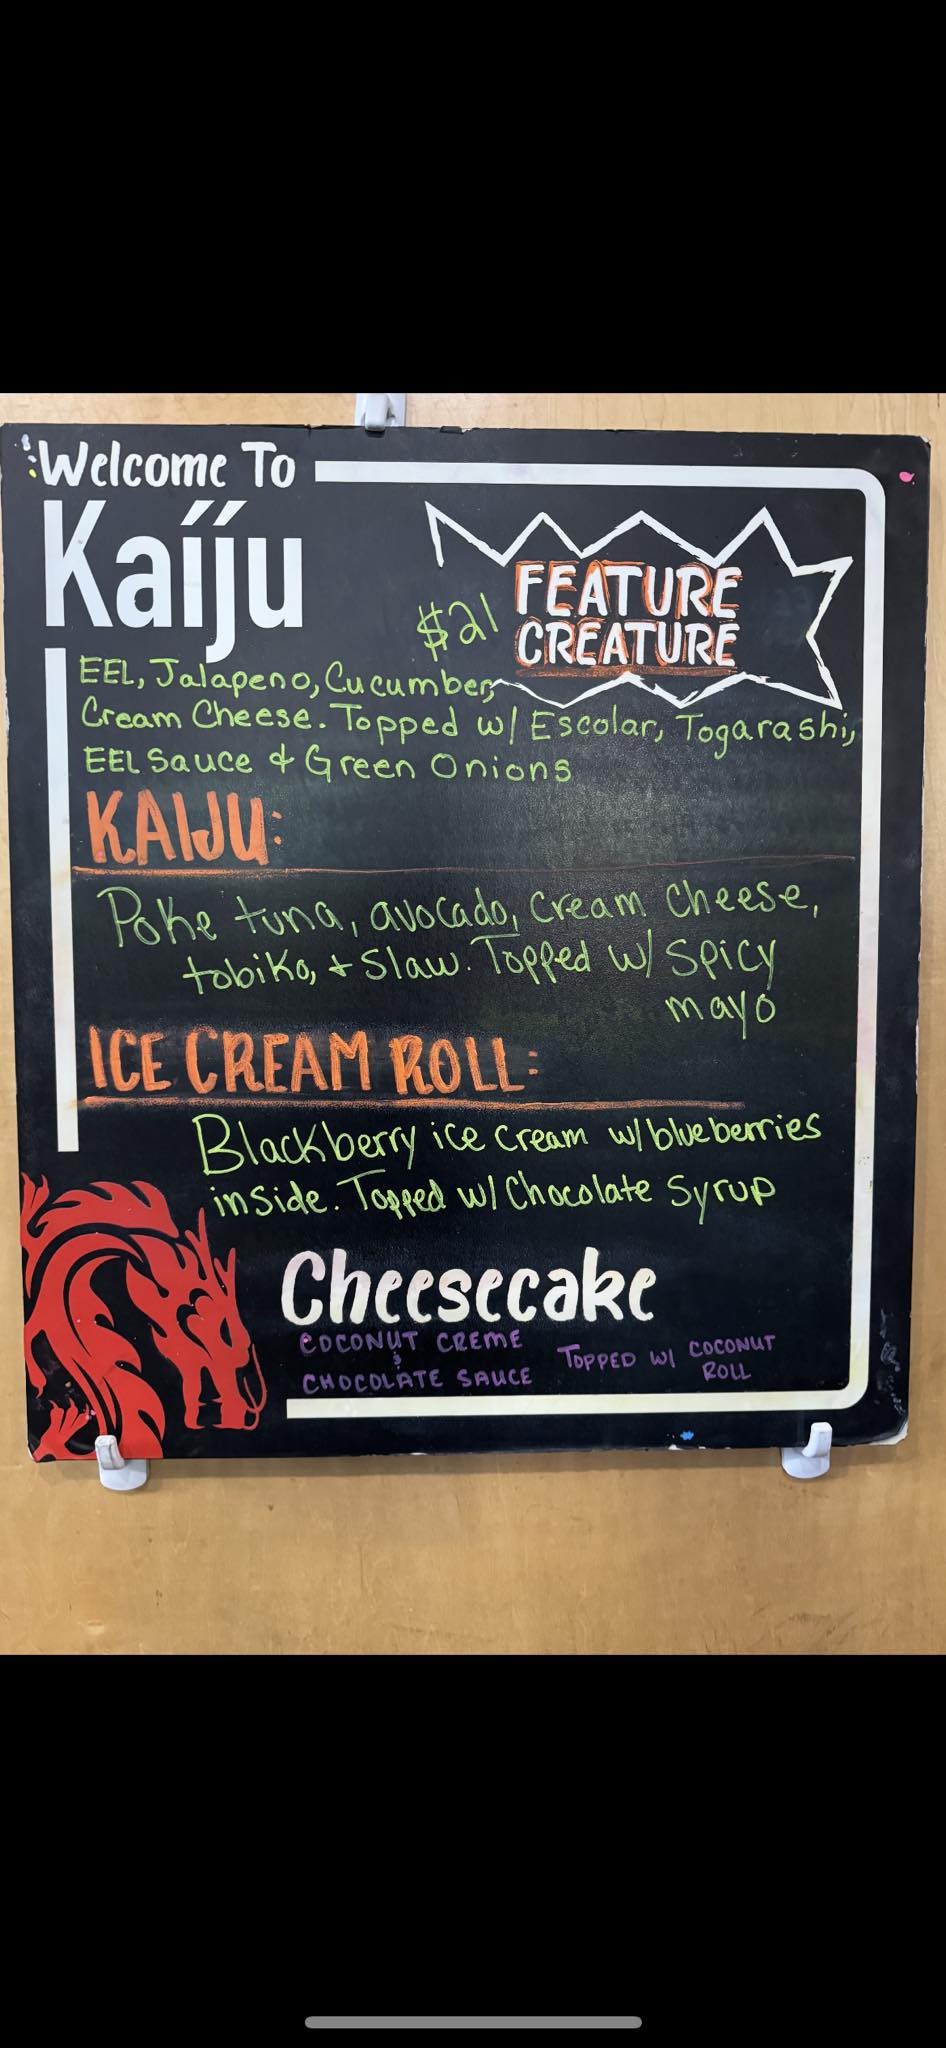 Welcome To
Kaíju
$21
FEATURE
CREATURE
EEL, Jalapeno, Cucumber,
Cream Cheese. Topped w/ Escolar, Togarashi,
EEL Sauce & Green Onions
KAIJU:
Poke tuna, avocado, cream cheese,
tobiko, + slaw. Topped w/ spicy
mayo
ICE CREAM ROLL:
Blackberry ice cream w/ blueberries
inside. Topped w/ Chocolate Syrup
Cheesecake
COCONUT CREME
&
CHOCOLATE SAUCE
TOPPED W/ COCONUT
ROLL